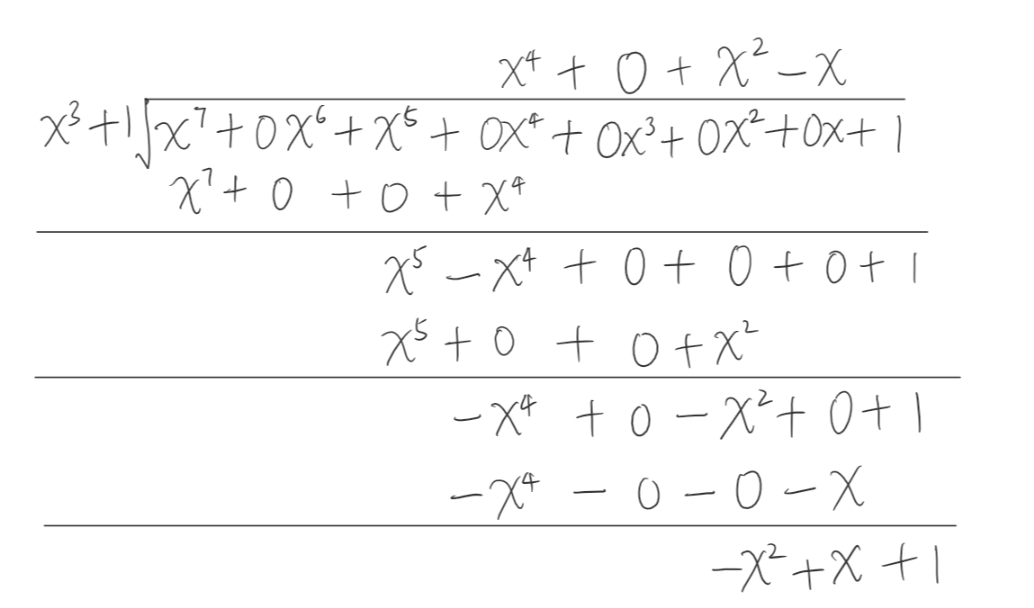 x⁴ + 0 + x² − x
x³ + 1 √ x⁷ + 0x⁶ + x⁵ + 0x⁴ + 0x³ + 0x² + 0x + 1
x⁷ + 0 + 0 + x⁴
x⁵ − x⁴ + 0 + 0 + 0 + 1
x⁵ + 0 + 0 + x²
−x⁴ + 0 − x² + 0 + 1
−x⁴ − 0 − 0 − x
−x² + x + 1